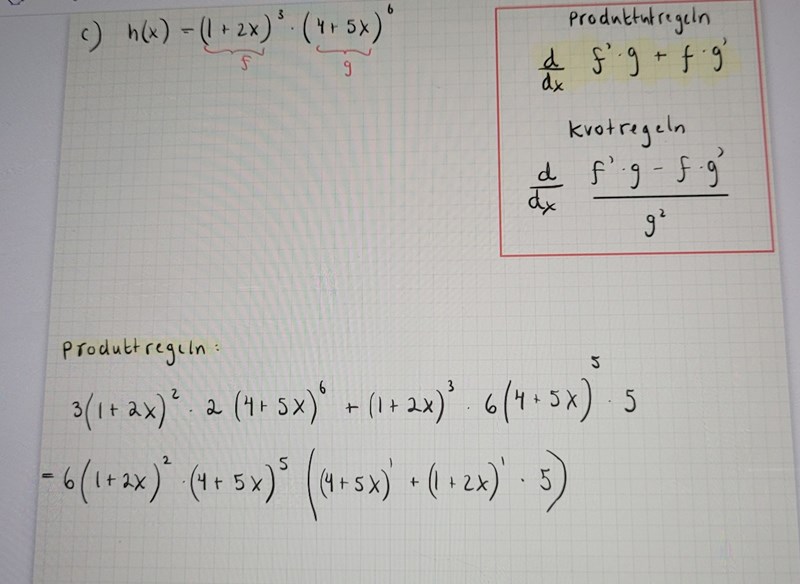 c) h(x) = (1 + 2x)³ · (4 + 5x)⁶
f g
Produktutregeln
d/dx f' · g + f · g'
Kvotregeln
d/dx (f' · g - f · g')/g²
Produktregeln:
3(1 + 2x)² · 2 (4 + 5x)⁶ + (1 + 2x)³ · 6(4 + 5x)⁵ · 5
= 6(1 + 2x)² · (4 + 5x)⁵ ((4 + 5x)¹ + (1 + 2x)¹ · 5)